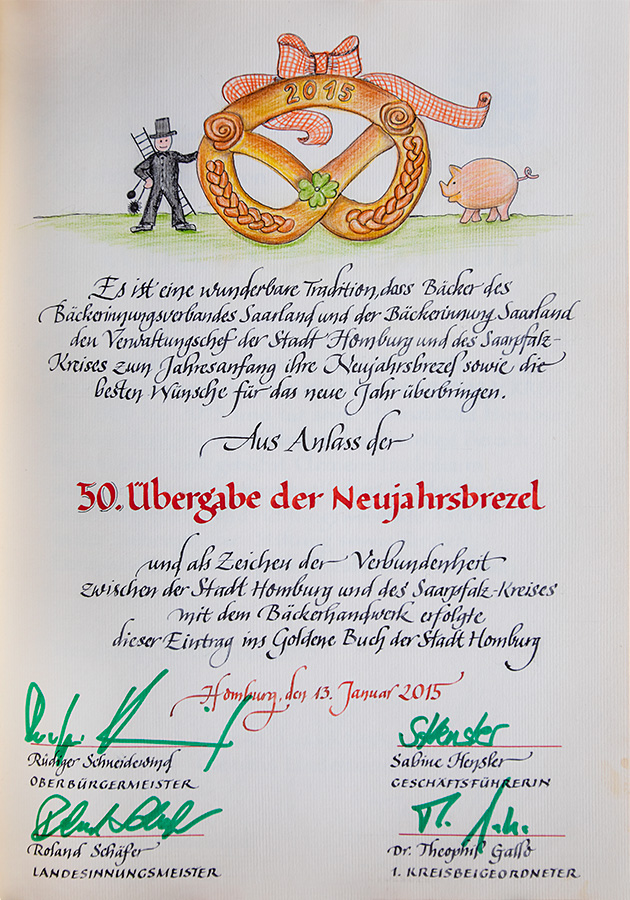 2015
Es ist eine wunderbare Tradition, dass Bäcker des
Bäckerinnungsverbandes Saarland und der Bäckerinnung Saarland
den Verwaltungschef der Stadt Homburg und des Saarpfalz-
Kreises zum Jahresanfang ihre Neujahrsbrezel sowie die
besten Wünsche für das neue Jahr überbringen.
Aus Anlass der
50. Übergabe der Neujahrsbrezel
und als Zeichen der Verbundenheit
zwischen der Stadt Homburg und des Saarpfalz-Kreises
mit dem Bäckerhandwerk erfolgte
dieser Eintrag ins Goldene Buch der Stadt Homburg
Homburg, den 13. Januar 2015
Rüdiger Schneidewind
OBERBÜRGERMEISTER
Sabine Hensler
GESCHÄFTSFÜHRERIN
Roland Schäfer
LANDESINNUNGSMEISTER
Dr. Theophil Gallo
1. KREISBEIGEORDNETER